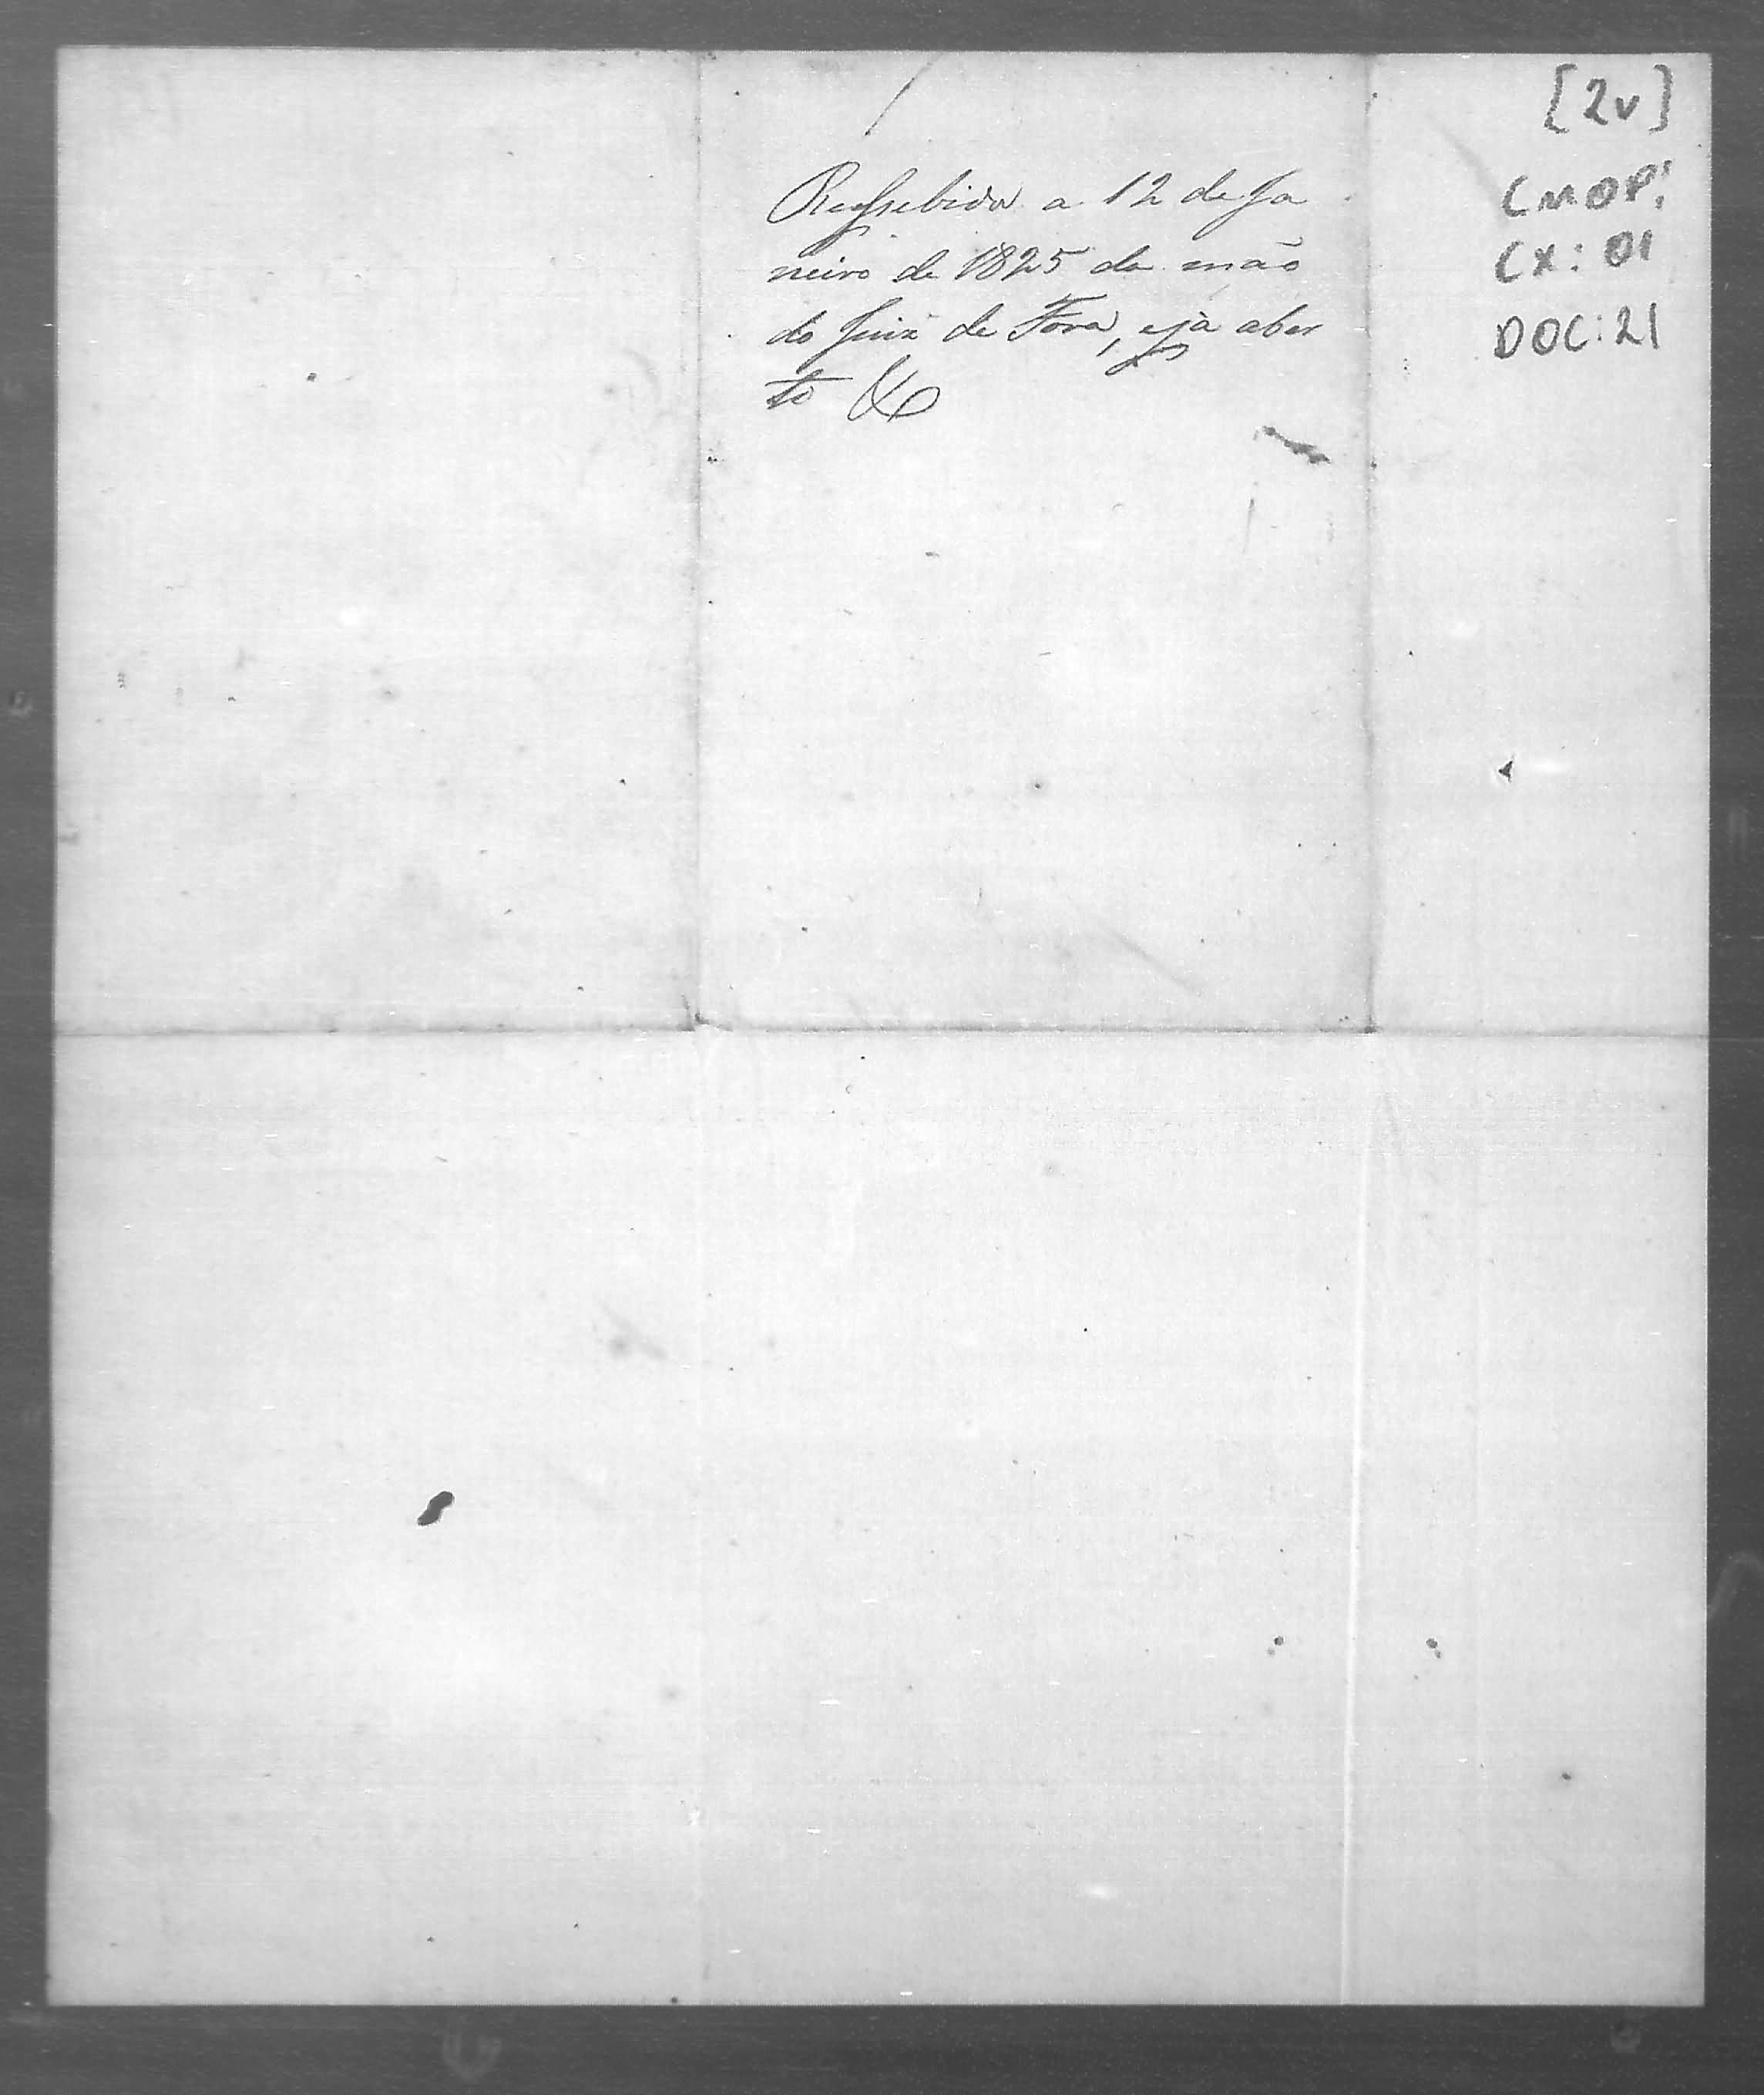 [2v]
CMOP:
CX: 01
DOC: 21
Ressebida a 12 de Ja
neiro de 1825 da mão
do Juiz de Fora, eja aber
to &